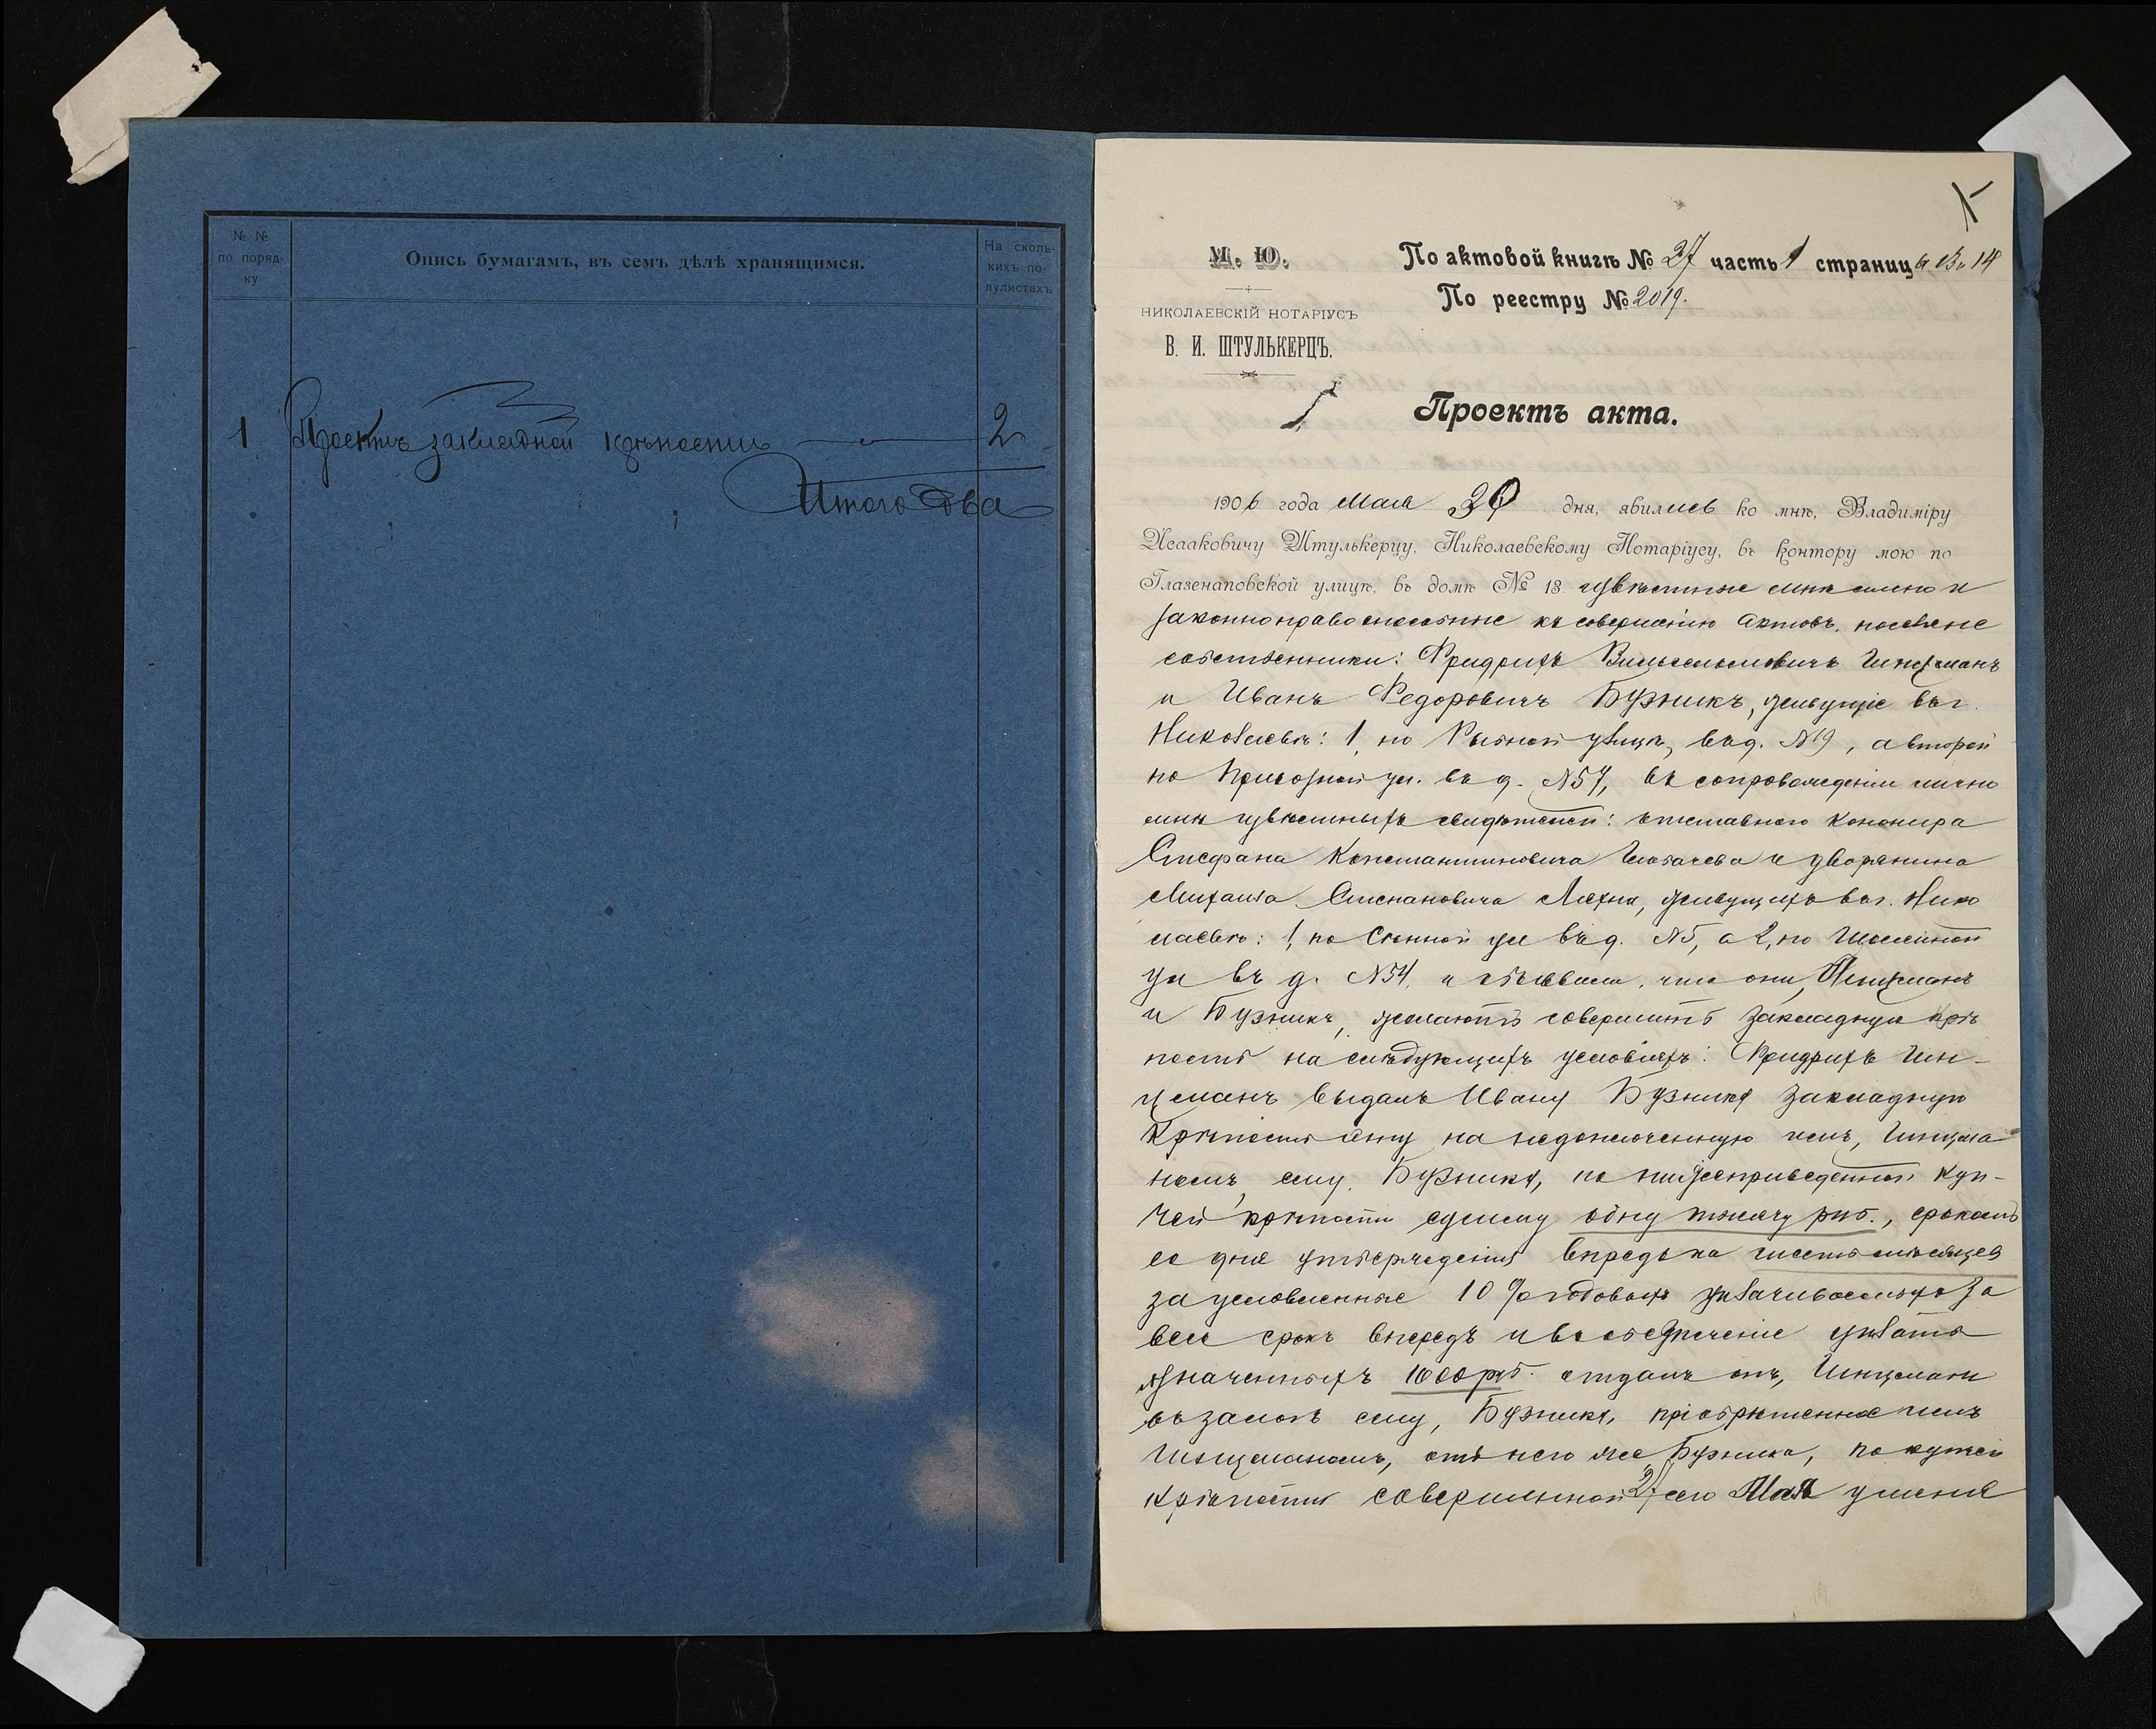 № №
по поряд-
ку
Опись бумагамъ, въ семъ дѣлѣ хранящимся.
На сколь-
кихъ по-
лулистахъ
1 Проектъ закладной крѣпости 2
Итого два
1
М. Ю.
НИКОЛАЕВСКІЙ НОТАРІУСЪ
В. И. ШТУЛЬКЕРЦЪ.
По актовой книгѣ № 27 часть 1 страниц 13 и 14
По реестру № 2019.
Проектъ акта.
1906 года Мая 30 дня, явились ко мнѣ, Владиміру
Исааковичу Штулькерцу, Николаевскому Нотаріусу, въ контору мою по
Глазенаповской улицѣ, въ домѣ № 13 извѣстные мнѣ лично и
законноправоспособные къ совершенію актовъ, поселяне
собственники: Фридрихъ Вильгельмовичъ Шицманъ
и Иванъ Федоровичъ Бузникъ, живущіе въ г.
Николаевѣ: 1, по Рыбной улицѣ, въ д. №19, а второй
по ул. въ д. №57, въ сопровожденіи лично
мнѣ извѣстныхъ свидѣтелей: отставного канонира
Стефана Константиновича и дворянина
Михаила Степановича живущихъ въ г. Нико
лаевѣ: 1, по Сѣнной ул въ д. №5, а 2, по
ул въ д. №54, и объявили, что они,
и Бузникъ, желаютъ совершить закладную крѣ
пость на слѣдующихъ условіяхъ: Фридрихъ
цманъ выдалъ Ивану Бузнику закладную
крѣпость на недоплаченную имъ,
номъ, ему, Бузнику, по нижеприведенной куп-
чей крѣпости сумму одну тысячу руб., срокомъ
со дня утвержденія впредь на шесть мѣсяцевъ
за условленные 10% годовыхъ уплачиваемыхъ за
весь срокъ впередъ и въ обезпеченіе уплаты
означенныхъ 1000 руб. отдалъ онъ,
въ залогъ ему, Бузнику, пріобрѣтенное имъ
отъ него же Бузника, по купчей
крѣпости совершенной 27 сего Мая у меня